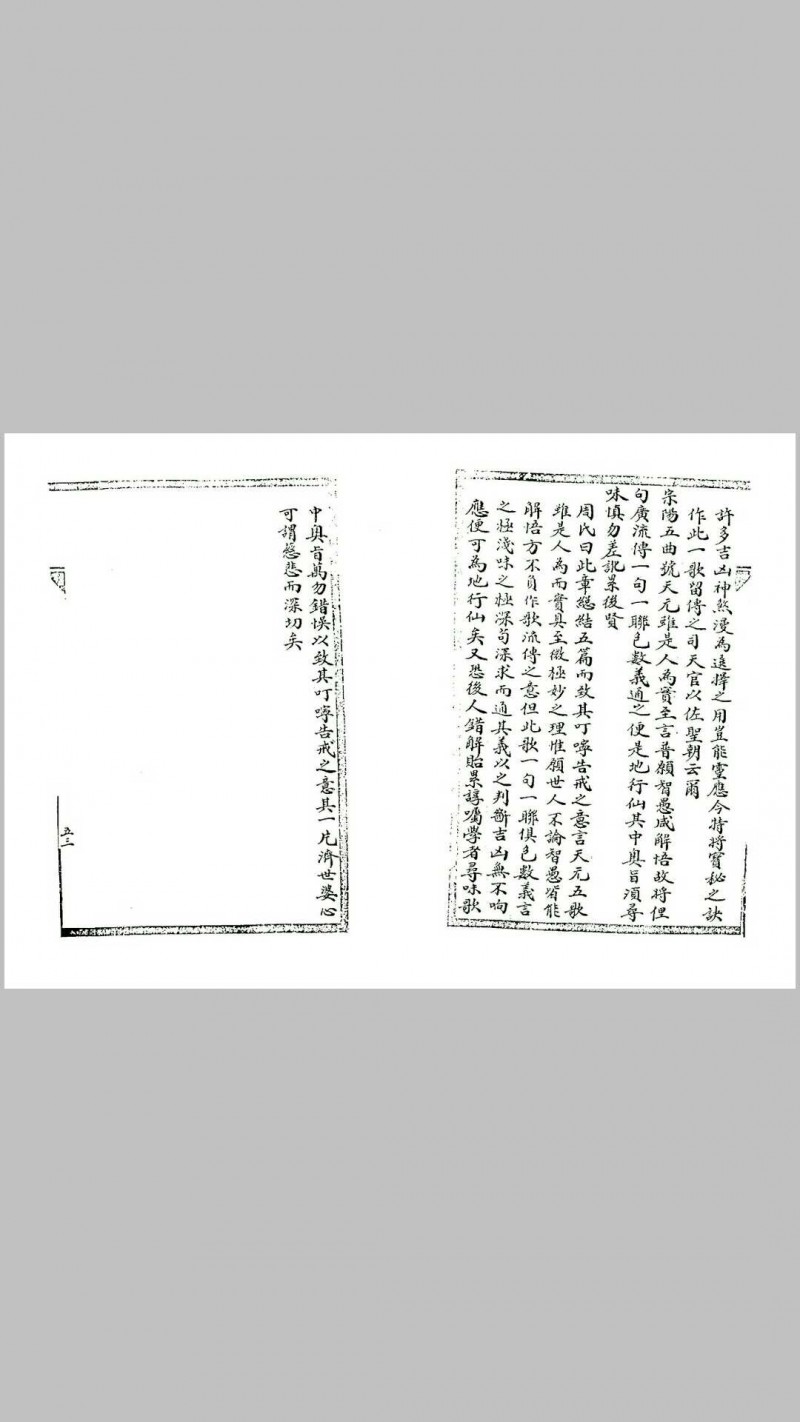 許多吉凶神煞漫為選擇之用豈能靈應今特將寳秘之訣
作此一歌留傳之司天官以佐聖朝云爾
宗陽五曲號天元雖是人為實至言普願智愚咸解悟故將俚
句廣流傳一句一聯包數義通之便是地行仙其中奥旨須尋
味慎勿差訛累後賢
周氏曰此章總結五篇而致其叮嚀告戒之意言天元五歌
雖是人為而實具至微極妙之理惟願世人不論智愚皆能
解悟方不負作歌流傳之意但此歌一句一聯俱包數義言
之極淺味之極深苟深求而通其義以之判斷吉凶無不响
應便可為地行仙矣又恐後人錯解貽累諄囑學者尋味歌
中奥旨萬勿錯悮以致其叮嚀告戒之意其一片濟世婆心
可謂慈悲而深切矣
五三